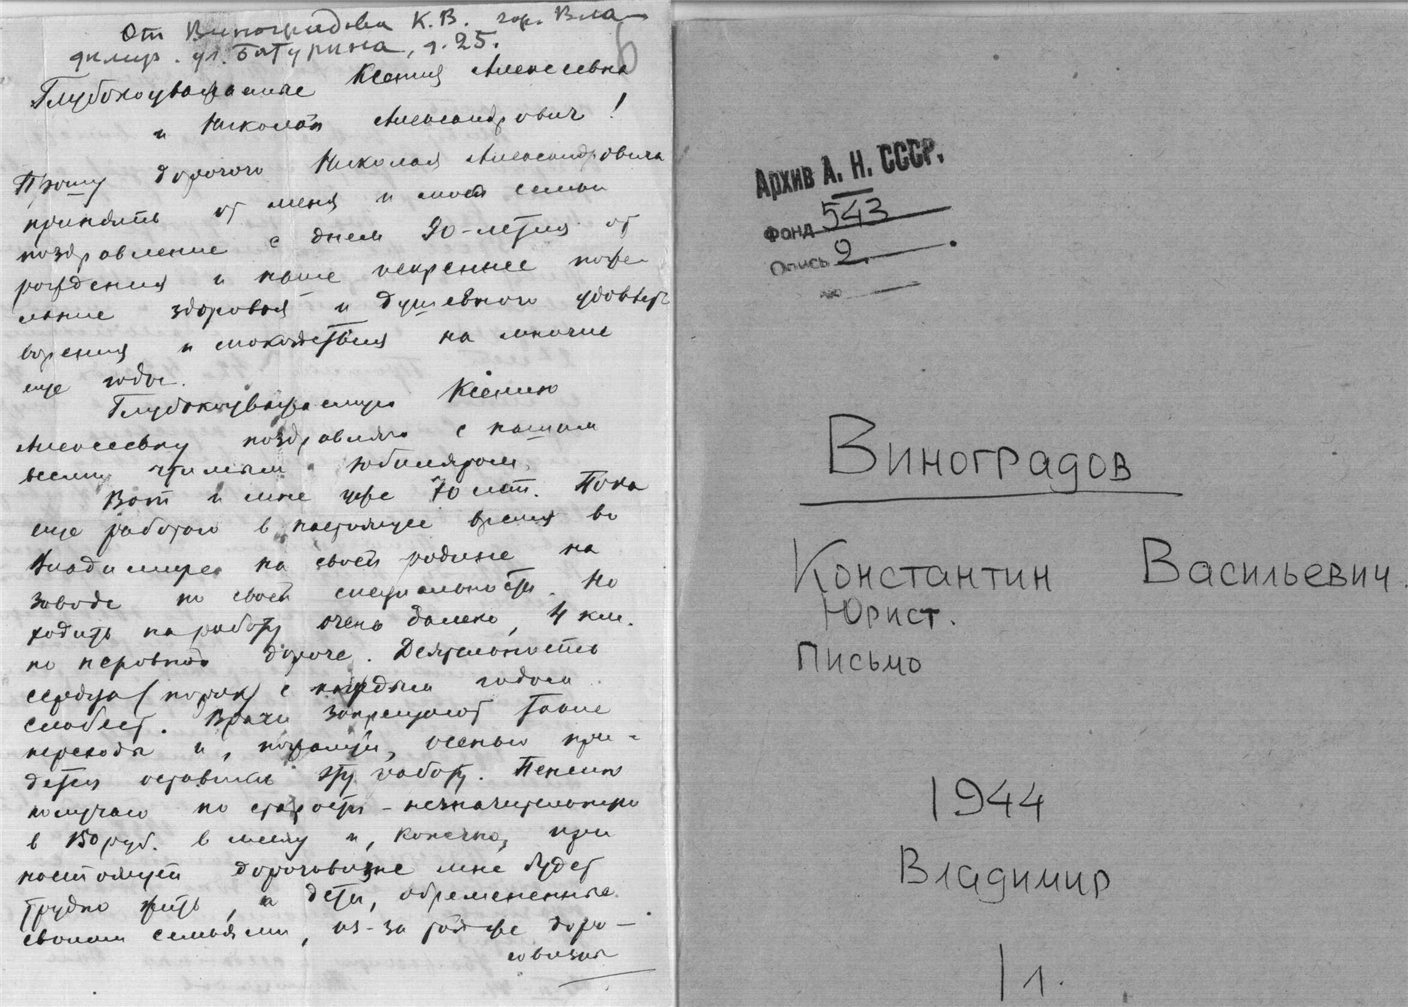 От Виноградова К.В. гор. Вла-
димир. ул. Батурина, д. 25.
Глубокоуважаемые Ксения Алексеевна
и Николай Александрович!
Прошу дорогого Николая Александровича
принять от меня и моей семьи
поздравление с днем 90-летия от
рождения и наше искреннее поже-
лание здоровья и душевного удовлет-
ворения и спокойствия на многие
еще годы.
Глубокоуважаемую Ксению
Алексеевну поздравляю с нашим
всеми чтимым юбиляром.
Вот и мне уже 70 лет. Пока
еще работаю в настоящее время во
Владимире на своей родине на
заводе по своей специальности. Но
ходить на работу очень далеко, 4 км.
по неровной дороге. Деятельность
сердца (порок) с каждым годом
слабеет. Врачи запрещают такие
переходы и, пожалуй, осенью при-
дется оставить эту работу. Пенсию
получаю по старости - незначительную
в 150 руб. в месяц и, конечно, при
настоящей дороговизне мне будет
трудно жить, а дети, обремененные
своими семьями, из-за той же доро-
говизны
6
Архив А. Н. СССР.
Фонд 543
Опись 2.
№
Виноградов
Константин Васильевич.
Юрист.
Письмо
1944
Владимир
1 л.